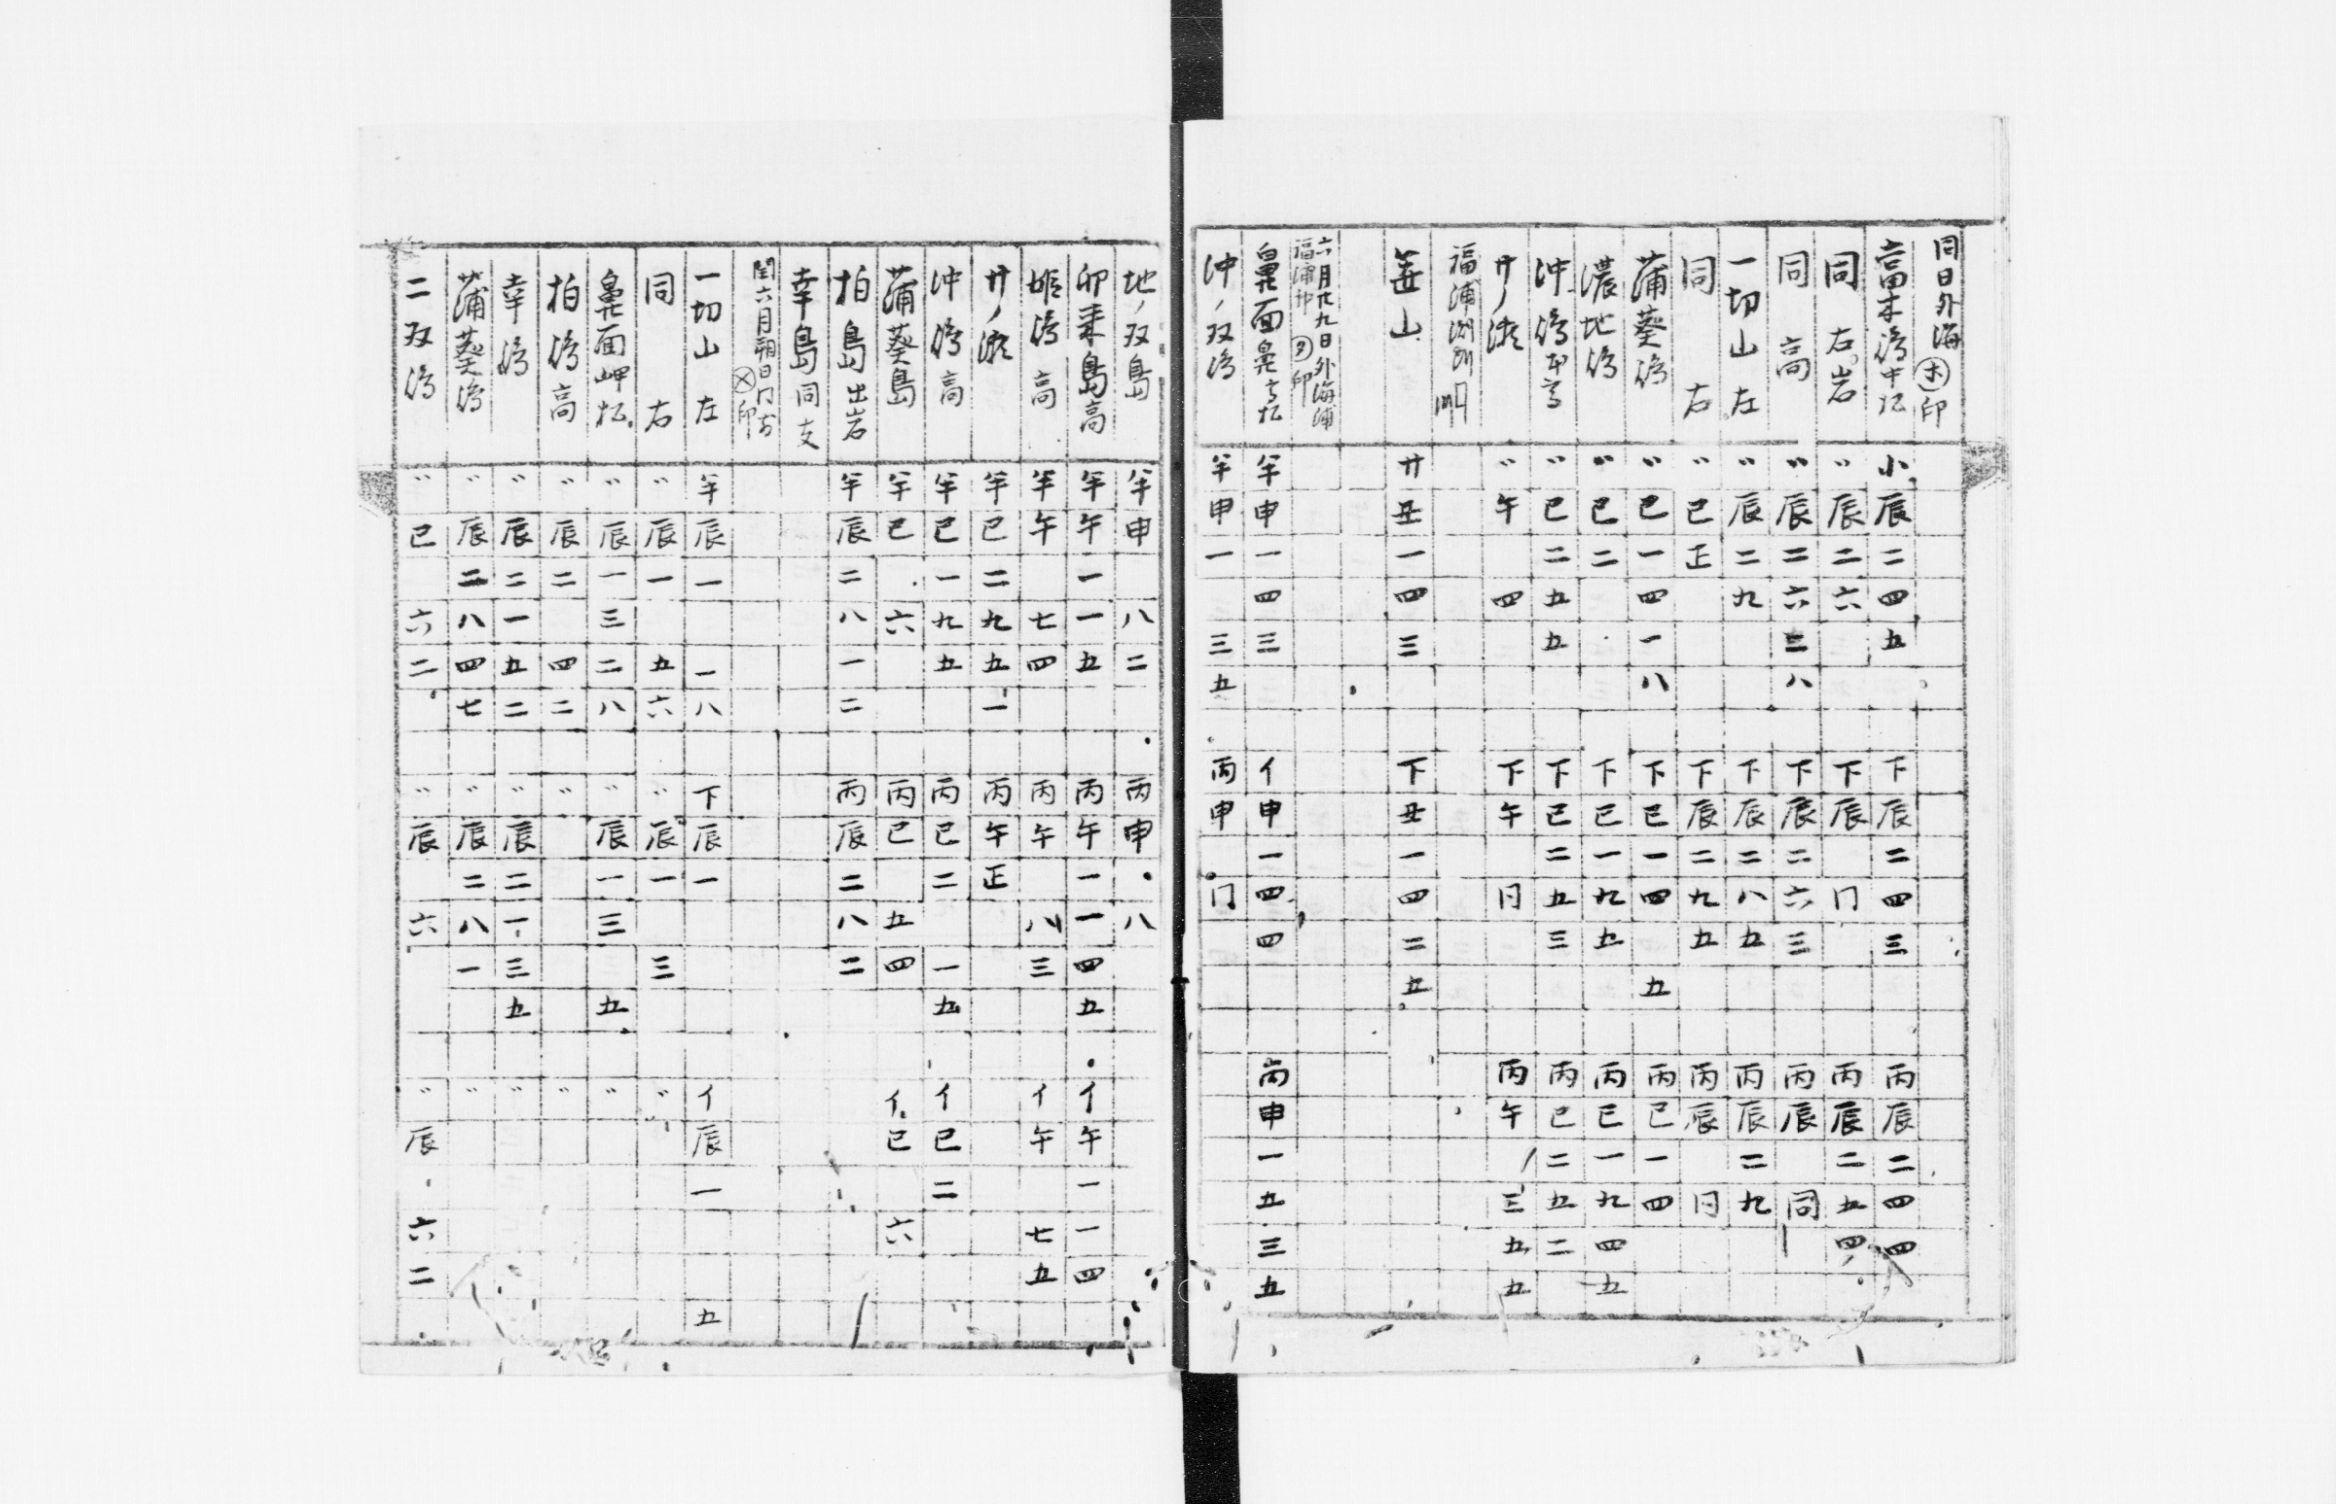 同日外海 ホ印
當木島中松 小辰二四五 下辰二四三 丙辰二四四
同 右岩 〃辰二六 下辰 同 丙辰二五四
同 高 〃辰二六三八 下辰二六三 丙辰 同
一切山 左 〃辰二九 下辰二八五 丙辰二九
同 右 〃巳正 下辰二九五 丙辰 同
蒲葵島 〃巳一四一八 下巳一四 五 丙巳一四
濃地島 〃巳二 下巳一九五 丙巳一九四五
沖島 〃巳二五五 下巳二五三 丙巳二五二
〃午 四 下午 同 丙午 三五五
福浦
山 廿丑一四三 下丑一四二五
六月廿九日外海浦
福浦 印
鼻面 申一四三 イ申一四四 丙申一五三五
沖ノ双島 申一 三五 丙申 同
地ノ双島 申 八二 丙申 八
卯来島高 午一一五 丙午一一四五 イ午一一四
姫島 高 午 七四 丙午 八三 イ午 七五
巳二九五一 丙午正
沖島 高 巳一九五 丙巳二 一五 イ巳二
蒲葵島 巳 六 丙巳 五四 イ巳 六
柏島 出岩 辰二八一二 丙辰二八二
幸島 同支
閏六月朔日
一切山 左 辰一 一八 下辰一 イ辰一 五
同 右 〃辰一 五六 〃辰一 三 〃
鼻面岬松 〃辰一三二八 〃辰一三 五 〃
柏島高 〃辰二 四二 〃 〃
幸島 〃辰二一五二 〃辰二一三五 〃
蒲葵島 〃辰二八四七 〃辰二八一 〃
二双島 〃巳 六二 〃辰 六 〃辰 六二